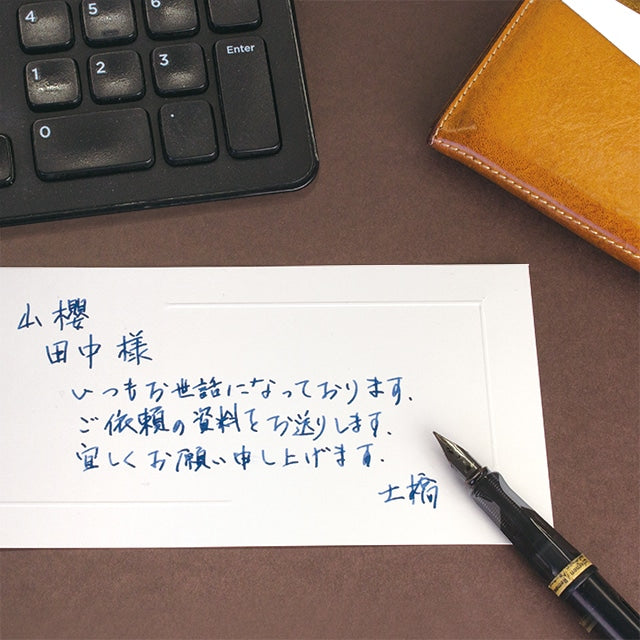 4
5
6
1
2
3
Enter
0
山櫻
田中様
いつもお世話になっております.
ご依頼の資料をお送りします.
宜しくお願い申し上げます.
土橋